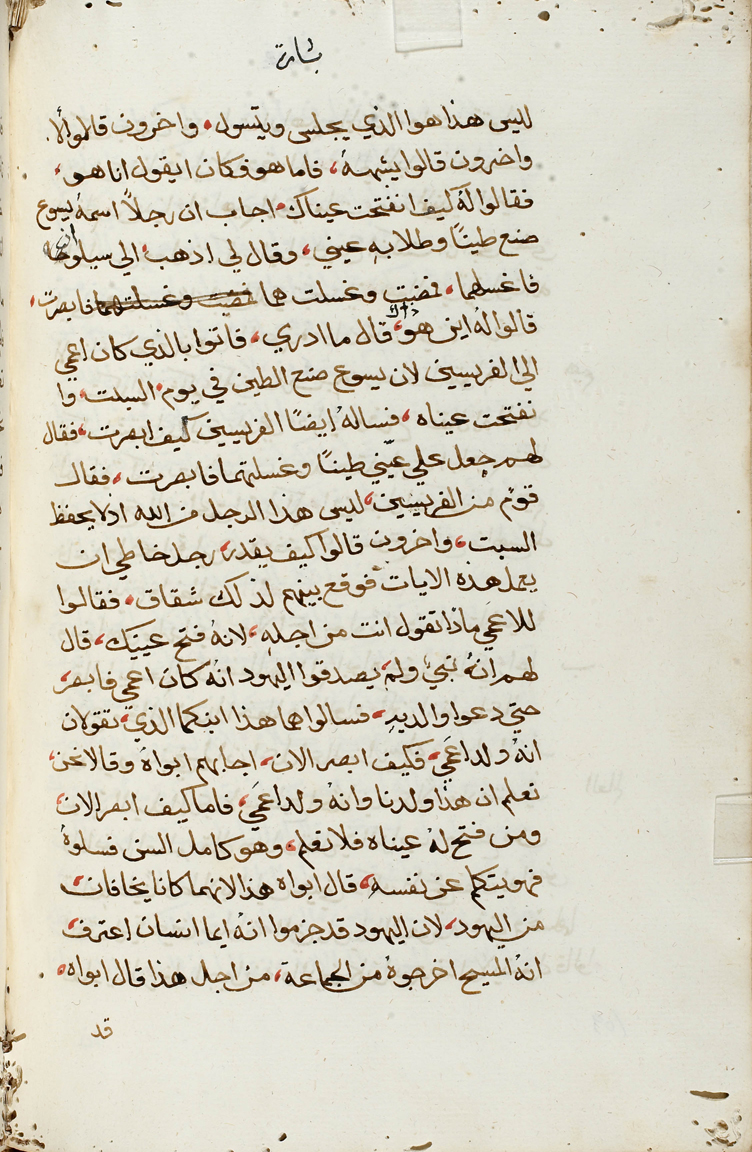 بشارة
لليس هذا هوا الذي يجلس ويتسول، واخرون قالوا لا
واخرون قالوا يشبهه، فاما هو فكان ايقول انا هو،
فقالوا له كيف انفتحت عيناك، اجاب ان رجلاً اسمه يسوع
صنع طينًا وطلا به عيني، وقال لي اذهب الي سيلوحا
فاغسلهما، فمضيت وغسلتهما فمضيت وغسلتهما فابصرت،
قالوا له اين هو ذاك، قال ما ادري، فاتوا بالذي كان اعمي
الي الفريسين لان يسوع صنع الطين في يوم السبت، وا
نفتحت عيناه، فساله ايضًا الفريسين كيف ابصرت، فقال
لهم جعل علي عيني طينًا وغسلتهما فابصرت، فقال
قوم من الفريسين، ليس هذا الرجل من الله اذ لا يحفظ
السبت، واخرون قالوا كيف يقدر، رجل خاطي ان
يعمل هذه الايات فوقع بينهم لذلك شقاق، فقالوا
للاعمي ماذا تقول انت من اجله، لانه فتح عينيك، قال
لهم انه نبي، ولم يصدقوا اليهود انه كان اعمي فابصر،
حتي دعوا والديه، فسالواهما هذا ابنكما الذي، تقولان
انه ولد اعمي، فكيف ابصر الان، اجابهم ابواه وقالا نحن،
نعلم ان هذا ولدنا وانه ولد اعمي، فاما كيف ابصر الان،
ومن فتح له عيناه فلا نعلم، وهو كامل السن فسلوه
فهو يتكلم عن نفسه، قال ابواه هذا لانهما كانا يخافان،
من اليهود، لان اليهود قد جزموا انه ايما انسان اعترف،
انه المسيح اخرجوه من الجماعة، من اجل هذا قال ابواه،
قد